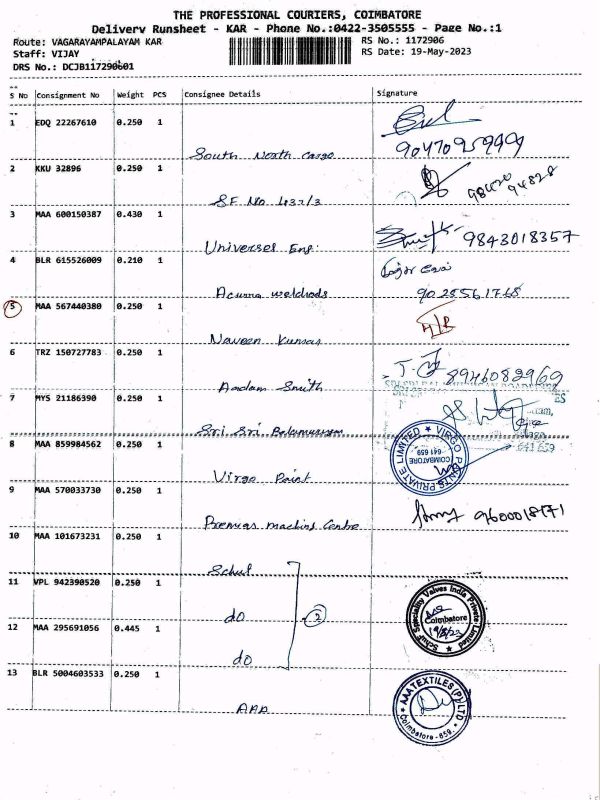 THE PROFESSIONAL COURIERS, COIMBATORE
Delivery Runsheet - KAR - Phone No.:0422-3505555 - Page No.:1
Route: VAGARAYAMPALAYAM KAR
RS No.: 1172906
Staff: VIJAY
RS Date: 19-May-2023
DRS No.: DCJB117290601
S No Consignment No Weight PCS Consignee Details Signature
1 EDQ 22267610 0.250 1
South North Cargo 9047095999
2 KKU 32896 0.250 1
SF No 432/3
3 MAA 600150387 0.430 1
Universes Eng: 9843018357
4 BLR 615526009 0.210 1
Acuma weldrods 9025561768
5 MAA 567440380 0.250 1
Naveen Kumar
6 TRZ 150727783 0.250 1
Aadam Smith 8946082969
7 MYS 21186390 0.250 1
Sri Sri Balamurugan
641 659
8 MAA 859984562 0.250 1
Virgo Paint
VIRGO PAINTS PRIVATE LIMITED
COIMBATORE
641 659
9 MAA 570033730 0.250 1
Premias machins Centre 9600018171
10 MAA 101673231 0.250 1
Schuf
11 VPL 942390520 0.250 1
do
2
Schuf Speciality Valves India Private Limited
Coimbatore
12 MAA 295691056 0.445 1
do
13 BLR 5004603533 0.250 1
AAA
AAA TEXTILES (P) LTD
Coimbatore - 659.